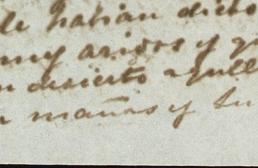 le habian dicho
muy aridos y q
n desierto aquell
mañas y su